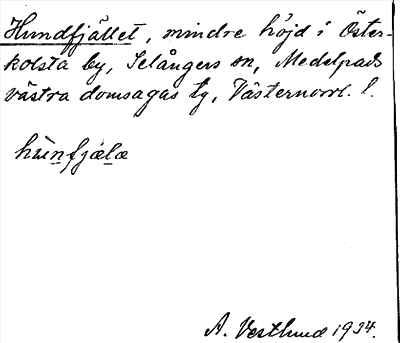 Hundfjället, mindre höjd i Öster-
kolsta by, Selångers sn, Medelpads
västra domsagas tg, Västernorrl. l.
hùnfjælæ
A. Vestlund 1934.